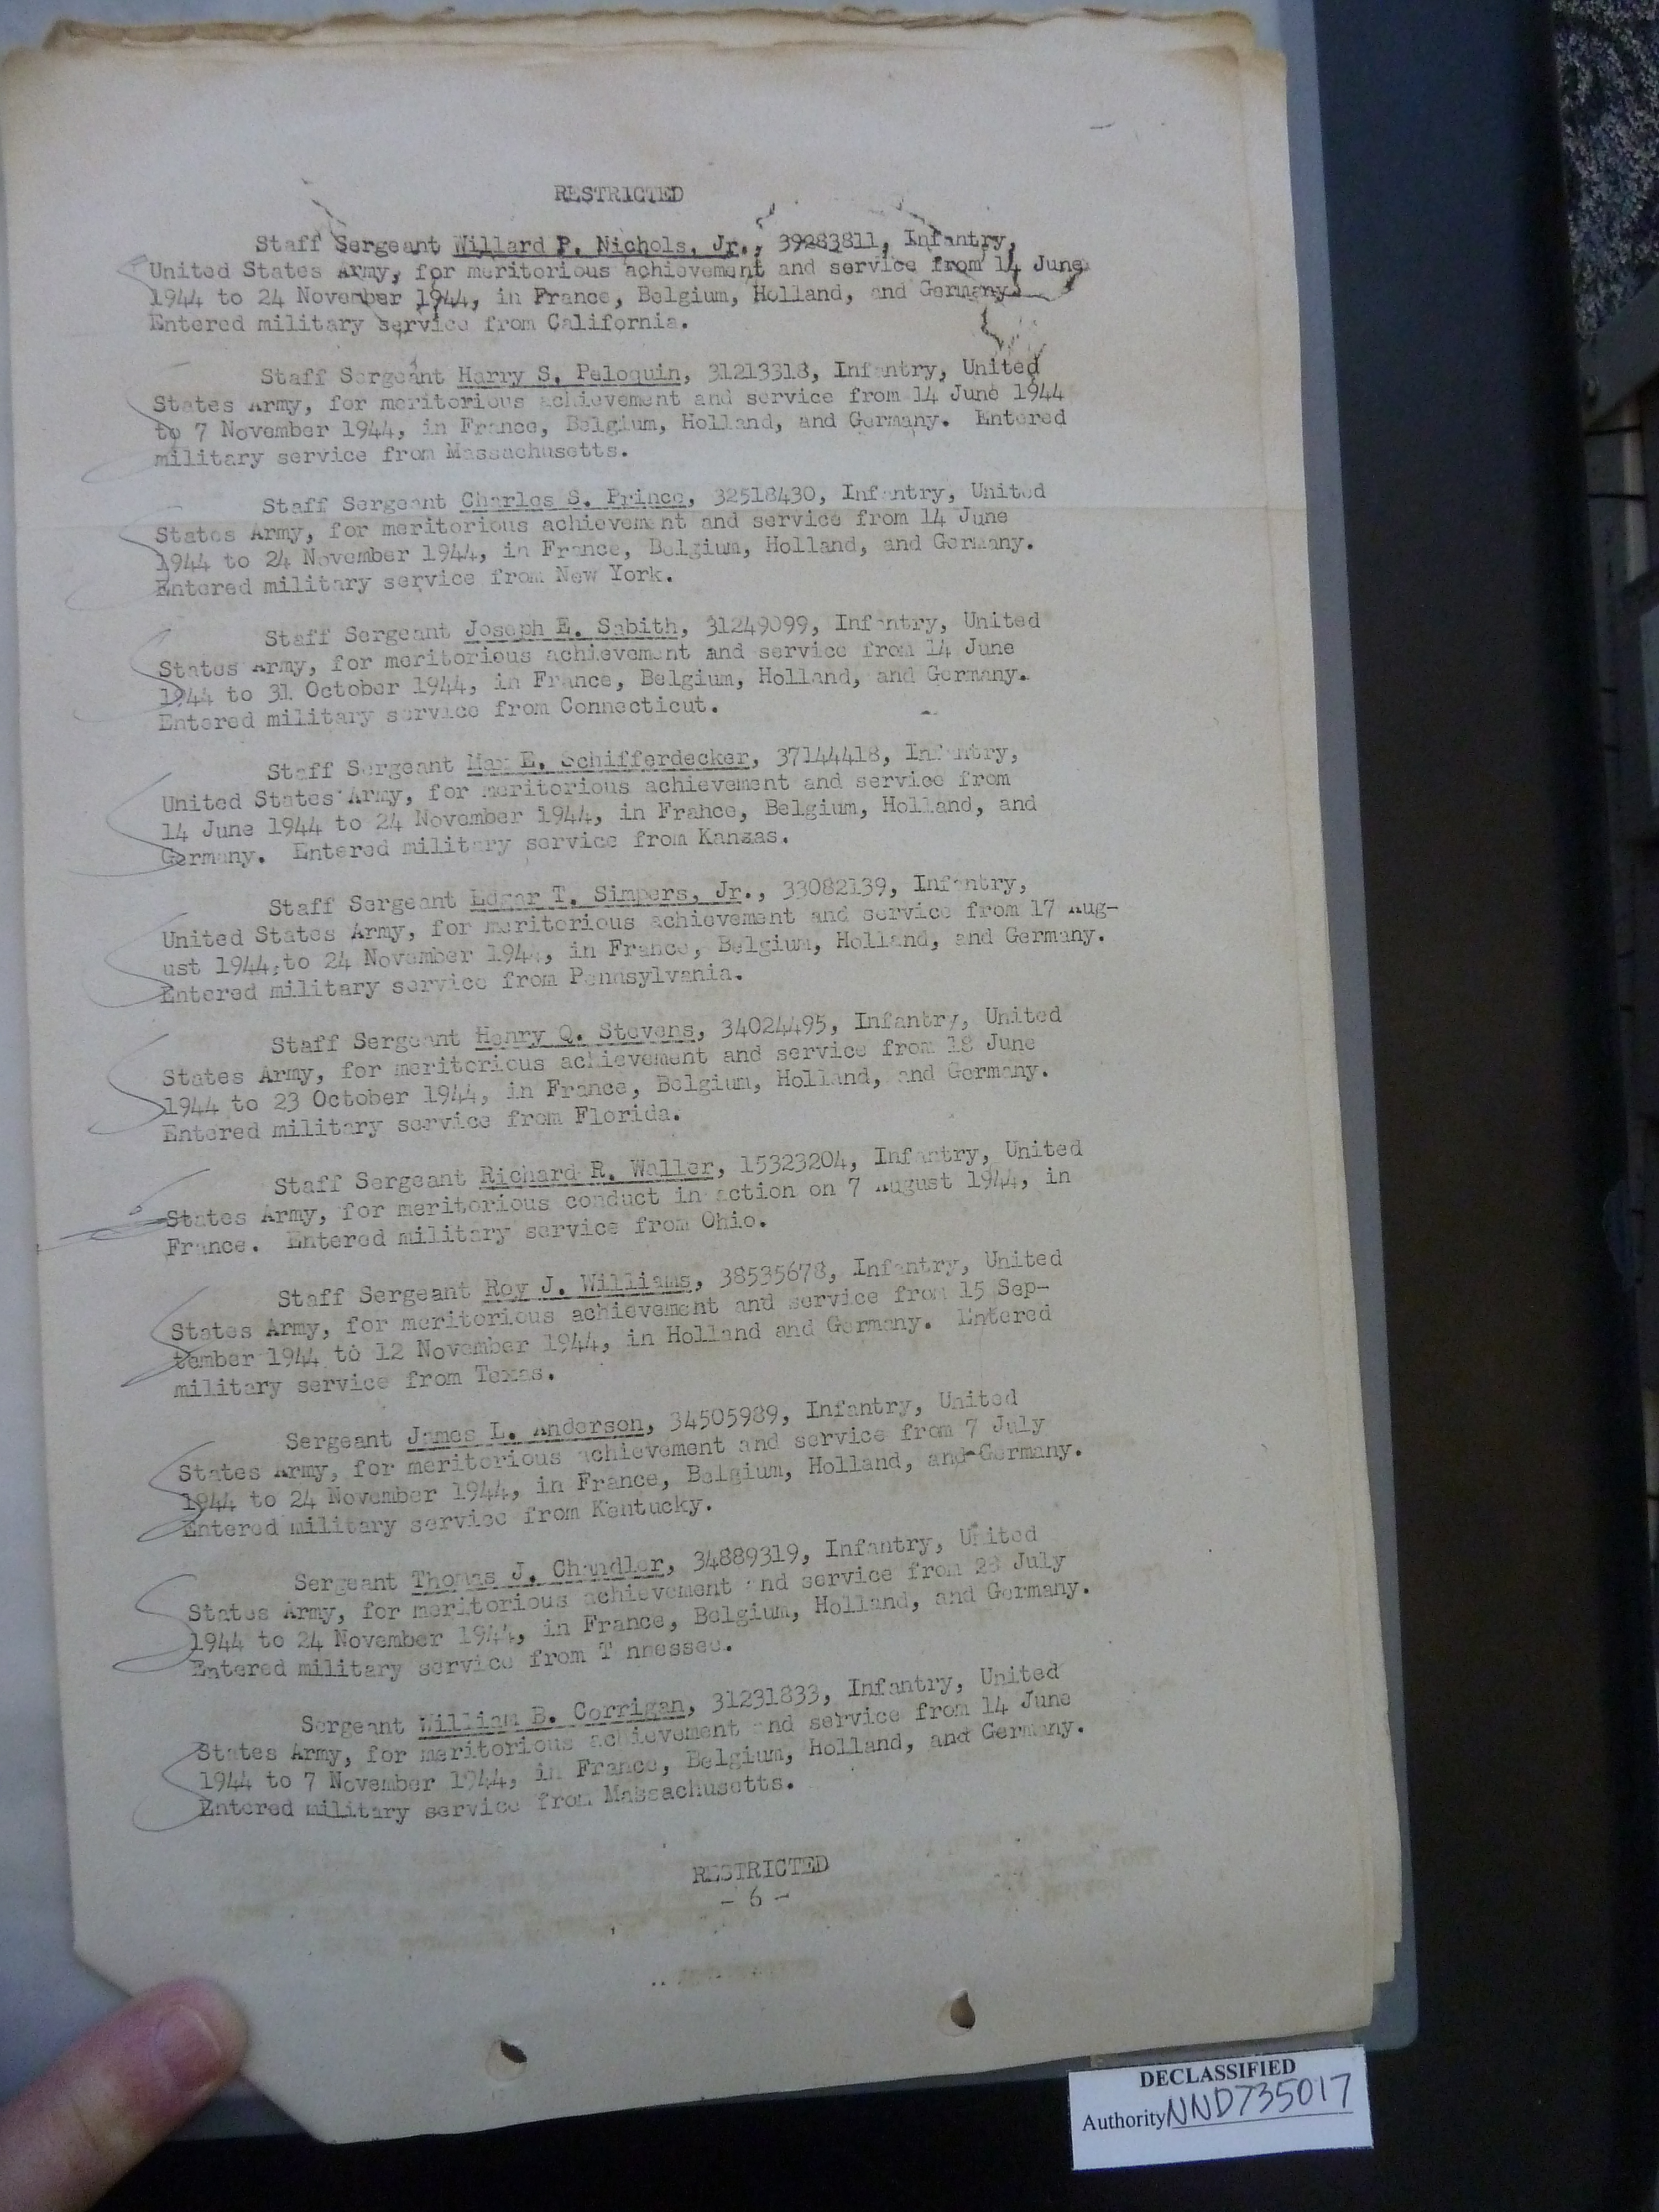 RESTRICTED
Staff Sergeant Willard P. Nichols, Jr., 39283811, Infantry,
United States Army, for meritorious achievement and service from 14 June
1944 to 24 November 1944, in France, Belgium, Holland, and Germany.
Entered military service from California.
Staff Sergeant Harry S. Peloquin, 31213318, Infantry, United
States Army, for meritorious achievement and service from 14 June 1944
to 7 November 1944, in France, Belgium, Holland, and Germany. Entered
military service from Massachusetts.
Staff Sergeant Charles S. Prince, 32518430, Infantry, United
States Army, for meritorious achievement and service from 14 June
1944 to 24 November 1944, in France, Belgium, Holland, and Germany.
Entered military service from New York.
Staff Sergeant Joseph E. Sabith, 31249099, Infantry, United
States Army, for meritorious achievement and service from 14 June
1944 to 31 October 1944, in France, Belgium, Holland, and Germany.
Entered military service from Connecticut.
Staff Sergeant Max E. Schifferdecker, 37144418, Infantry,
United States Army, for meritorious achievement and service from
14 June 1944 to 24 November 1944, in France, Belgium, Holland, and
Germany. Entered military service from Kansas.
Staff Sergeant Edgar T. Simpers, Jr., 33082139, Infantry,
United States Army, for meritorious achievement and service from 17 Aug-
ust 1944 to 24 November 1944, in France, Belgium, Holland, and Germany.
Entered military service from Pennsylvania.
Staff Sergeant Henry Q. Stevens, 34024495, Infantry, United
States Army, for meritorious achievement and service from 18 June
1944 to 23 October 1944, in France, Belgium, Holland, and Germany.
Entered military service from Florida.
Staff Sergeant Richard R. Waller, 15323204, Infantry, United
States Army, for meritorious conduct in action on 7 August 1944, in
France. Entered military service from Ohio.
Staff Sergeant Roy J. Williams, 38535678, Infantry, United
States Army, for meritorious achievement and service from 15 Sep-
tember 1944 to 12 November 1944, in Holland and Germany. Entered
military service from Texas.
Sergeant James L. Anderson, 34505989, Infantry, United
States Army, for meritorious achievement and service from 7 July
1944 to 24 November 1944, in France, Belgium, Holland, and Germany.
Entered military service from Kentucky.
Sergeant Thomas J. Chandler, 34889319, Infantry, United
States Army, for meritorious achievement and service from 28 July
1944 to 24 November 1944, in France, Belgium, Holland, and Germany.
Entered military service from Tennessee.
Sergeant William B. Corrigan, 31231833, Infantry, United
States Army, for meritorious achievement and service from 14 June
1944 to 7 November 1944, in France, Belgium, Holland, and Germany.
Entered military service from Massachusetts.
RESTRICTED
- 6 -
DECLASSIFIED
Authority NND735017